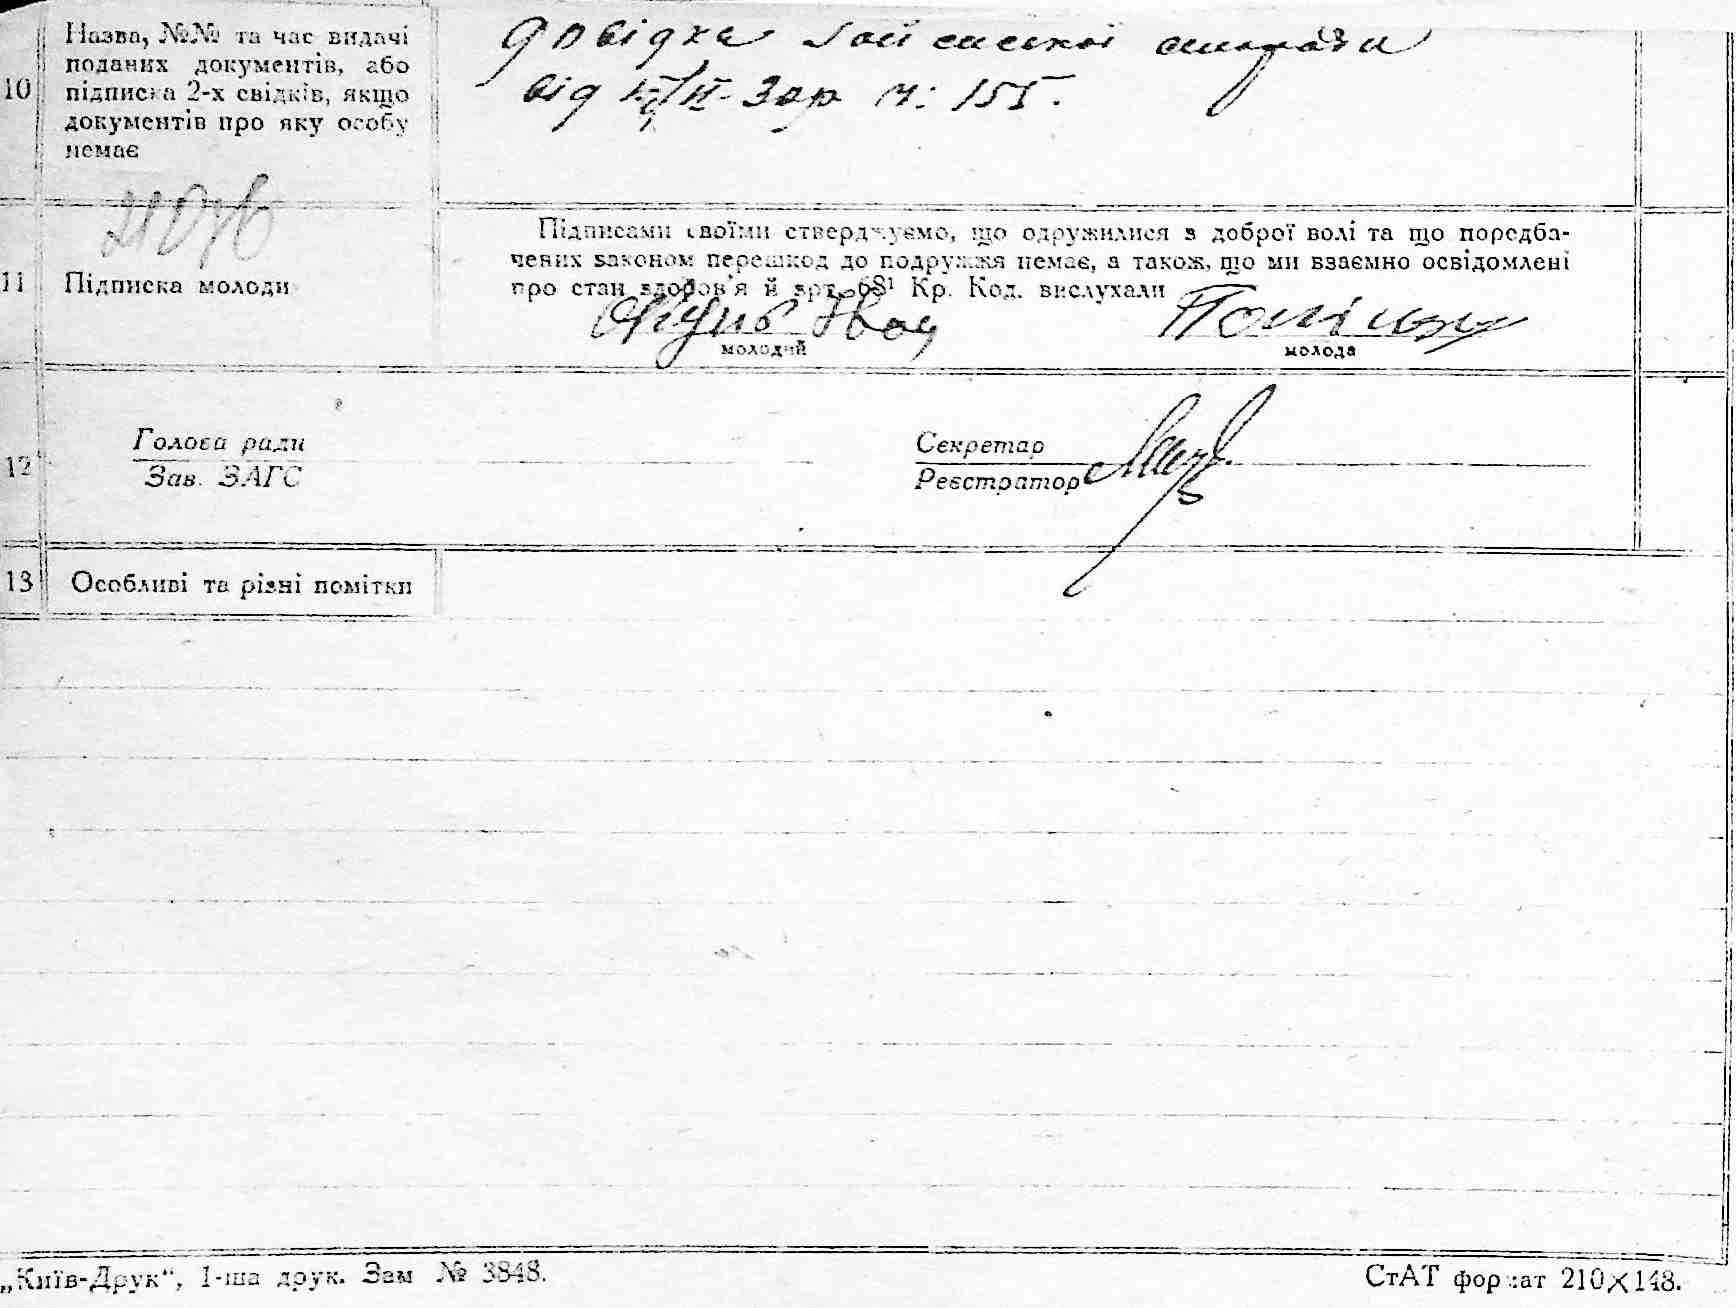 10 Назва, №№ та час видачі
поданих документів, або
підписка 2-х свідків, якщо
документів про яку особу
немає
Довідка
від 30р ч: 155.
11 Підписка молоди
Підписами своїми стверджуємо, що одружилися з доброї волі та що передба-
чених законом перешкод до подружжя немає, а також, що ми взаємно освідомлені
про стан здоров'я й арт. 68¹ Кр. Код. вислухали
молодий
молода
12 Голова ради
Зав. ЗАГС
Секретар
Реєстратор
13 Особливі та різні помітки
„Київ-Друк“, 1-ша друк. Зам № 3848.
СтАТ формат 210×148.